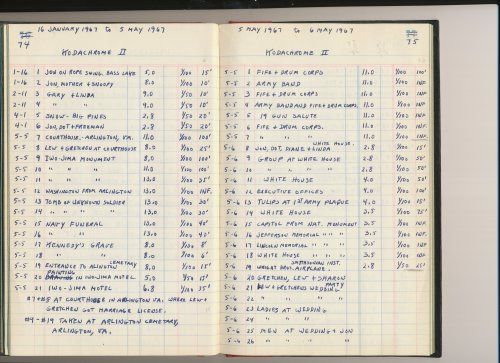 16 JANUARY 1967 to 5 MAY 1967
74
KODACHROME II
1-16 1 JON ON ROPE SWING, BASS LAKE 5.0 1/100 15'
1-16 2 JON, MOTHER & SNOOPY 8.0 1/100 10'
2-11 3 GARY & LINDA 9.0 1/50 10'
2-11 4 " " 9.0 1/50 10'
4-1 5 SNOW - BIG PINES 2.8 1/50 20'
4-1 6 JON, DOT & FREEMAN 2.8 1/50 20'
5-5 7 COURTHOUSE - ARLINGTON, VA. 11.0 1/100 100'
5-5 8 LEW & GRETCHEN AT COURTHOUSE 8.0 1/100 25'
5-5 9 IWO-JIMA MONUMENT 8.0 1/100 100'
5-5 10 " " " 11.0 1/100 100'
5-5 11 " " " 13.0 1/100 35'
5-5 12 WASHINGTON FROM ARLINGTON 13.0 1/100 INF.
5-5 13 TOMB OF UNKNOWN SOLDIER 13.0 1/100 30'
5-5 14 " " " " 13.0 1/100 30'
5-5 15 NAVY FUNERAL 10.0 1/100 40'
5-5 16 " " 13.0 1/100 40'
5-5 17 KENNEDY'S GRAVE 8.0 1/100 8'
5-5 18 " " 8.0 1/100 6'
5-5 19 ENTRANCE TO ARLINGTON CEMETARY 8.0 1/100 15'
5-5 20 PAINTING IN IWO-JIMA MOTEL 5.0 1/50 15'
5-5 21 IWO-JIMA MOTEL 6.8 1/100 35'
#7 & #8 AT COURTHOUSE IN ARLINGTON VA. WHERE LEW &
GRETCHEN GOT MARRIAGE LICENSE.
#9 - #19 TAKEN AT ARLINGTON CEMETARY,
ARLINGTON, VA.
5 MAY 1967 to 6 MAY 1967
75
KODACHROME II
5-5 1 FIFE & DRUM CORPS 11.0 1/100 100'
5-5 2 ARMY BAND 11.0 1/100 INF.
5-5 3 FIFE & DRUM CORPS 11.0 1/100 INF.
5-5 4 ARMY BAND AND FIFE & DRUM CORPS. 11.0 1/100 INF.
5-5 5 19 GUN SALUTE 11.0 1/100 INF.
5-5 6 FIFE & DRUM CORPS. 11.0 1/100 INF.
5-5 7 " " " " 11.0 1/100 INF.
5-6 8 JON, DOT, DIANE & LINDA WHITE HOUSE. 2.8 1/100 15'
5-6 9 GROUP AT WHITE HOUSE 2.8 1/100 50'
5-6 10 " " " " 2.8 1/100 50'
5-6 11 WHITE HOUSE 4.0 1/100 50'
5-6 12 EXECUTIVE OFFICES 4.0 1/100 100'
5-6 13 TULIPS AT 1st ARMY PLAQUE 4.0 1/100 15'
5-6 14 WHITE HOUSE 3.5 1/100 75'
5-6 15 CAPITOL FROM NAT. MONUMENT 3.5 1/100 INF.
5-6 16 JEFFERSON MEMORIAL " " " 3.5 1/100 INF.
5-6 17 LINCOLN MEMORIAL " " " 3.5 1/100 INF.
5-6 18 WHITE HOUSE " " " 3.5 1/100 INF.
5-6 19 WRIGHT BROS. AIRPLANE. SMITHSONIAN INST. 2.8 1/50 25'
5-6 20 GRETCHEN, LEW & SHARON
5-6 21 LEW & GRETCHENS WEDDING PARTY
5-6 22 " " " "
5-6 23 LADIES AT WEDDING
5-6 24 " " "
5-6 25 MEN AT WEDDING & JON
5-6 26 " " "